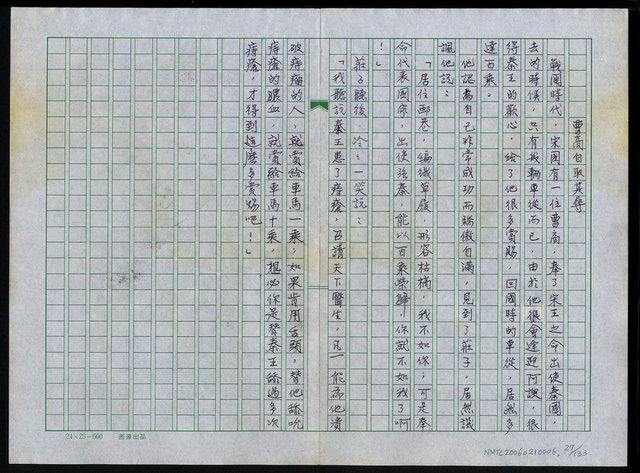 曹商自取其辱
戰國時代，宋國有一位曹商，奉了宋王之命出使秦國，
去的時候，只有幾輛車從而已，由於他很會逢迎阿諛，很
得秦王的歡心，給了他很多賞賜，回國時的車從，居然多
達百乘。
他認為自己非常成功而驕傲自滿，見到了莊子，居然諷
諷他說：
「居住陋巷，編織草履，形容枯槁，我不如你；可是奉
命代表國家，出使強秦，能以百乘榮歸，你就不如我了啊
！」
莊子聽後，冷冷一笑說：
「我聽說秦王患了痔瘡，召請天下醫生，凡一能為他潰
破痔瘡的人，就賞給車馬一乘；如果肯用舌頭，替他舔吮
痔瘡的膿血，就賞給車馬十乘，想必你是替秦王舔過多次
痔瘡，才得到這麼多賞賜吧！」
24×25=600 西源出品
NMTL20060210006, 27/133